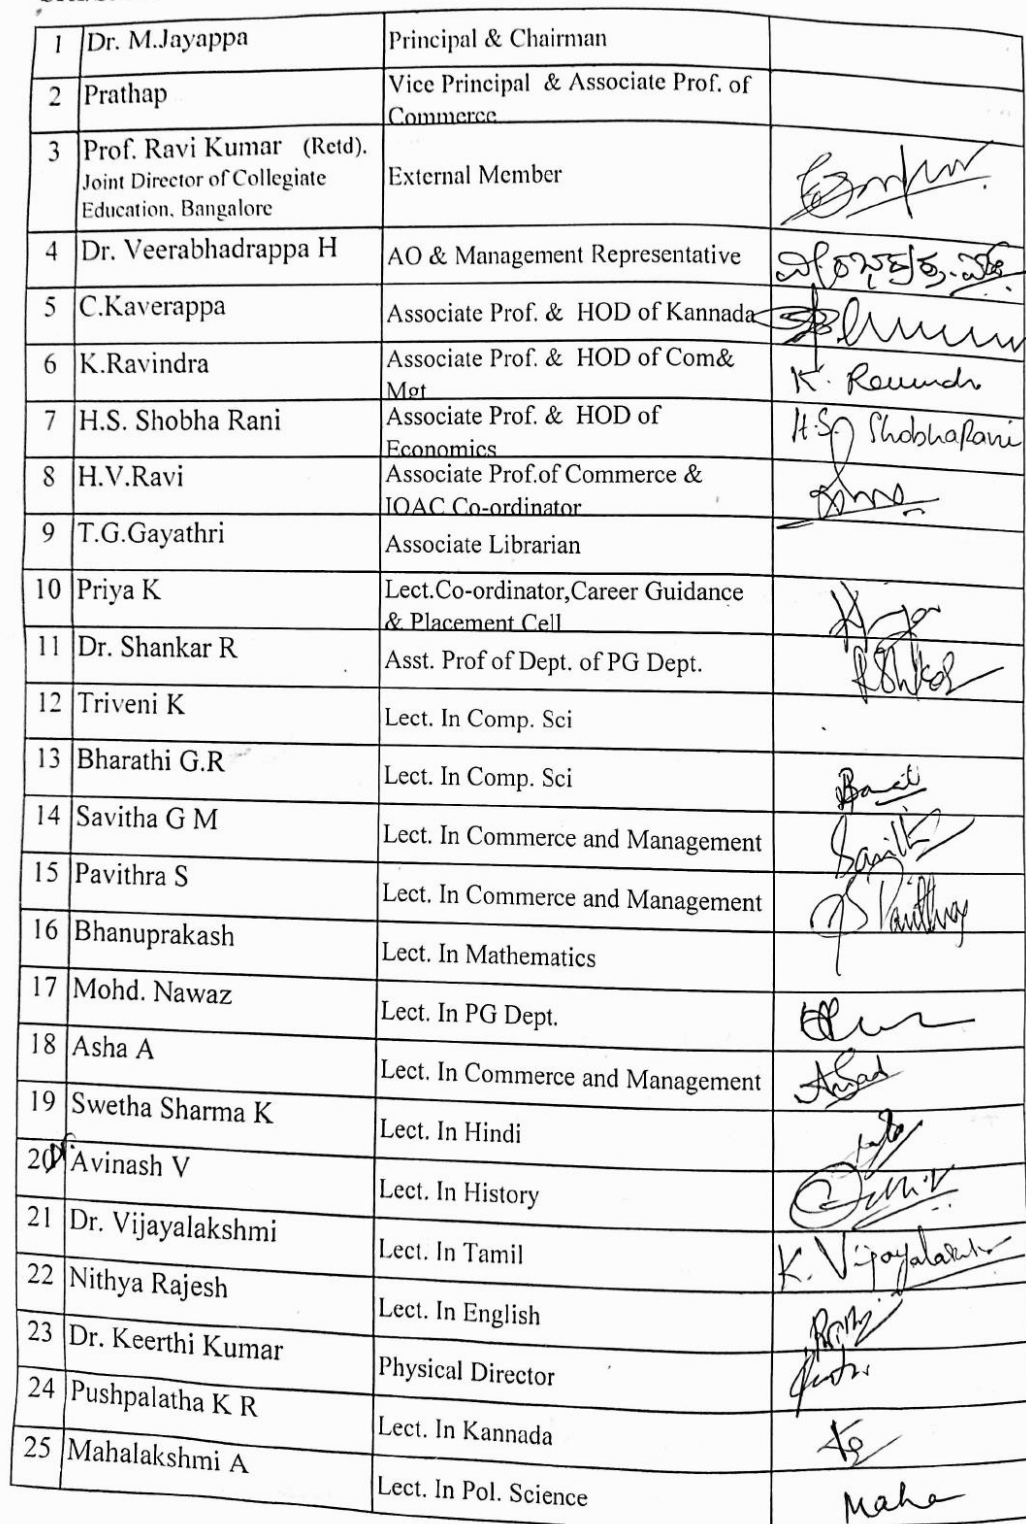 1 Dr. M.Jayappa Principal & Chairman
2 Prathap Vice Principal & Associate Prof. of
Commerce
3 Prof. Ravi Kumar (Retd).
Joint Director of Collegiate
Education, Bangalore
External Member
4 Dr. Veerabhadrappa H AO & Management Representative
5 C.Kaverappa Associate Prof. & HOD of Kannada
6 K.Ravindra Associate Prof. & HOD of Com&
Mgt
K. Ravindra
7 H.S. Shobha Rani Associate Prof. & HOD of
Economics
H.S. ShobhaRani
8 H.V.Ravi Associate Prof.of Commerce &
IQAC Co-ordinator
9 T.G.Gayathri Associate Librarian
10 Priya K Lect.Co-ordinator,Career Guidance
& Placement Cell
11 Dr. Shankar R Asst. Prof of Dept. of PG Dept.
12 Triveni K Lect. In Comp. Sci
13 Bharathi G.R Lect. In Comp. Sci
14 Savitha G M Lect. In Commerce and Management
15 Pavithra S Lect. In Commerce and Management
16 Bhanuprakash Lect. In Mathematics
17 Mohd. Nawaz Lect. In PG Dept.
18 Asha A Lect. In Commerce and Management
19 Swetha Sharma K Lect. In Hindi
20 Avinash V Lect. In History
21 Dr. Vijayalakshmi Lect. In Tamil K. Vijayalakshmi
22 Nithya Rajesh Lect. In English
23 Dr. Keerthi Kumar Physical Director
24 Pushpalatha K R Lect. In Kannada
25 Mahalakshmi A Lect. In Pol. Science Maha